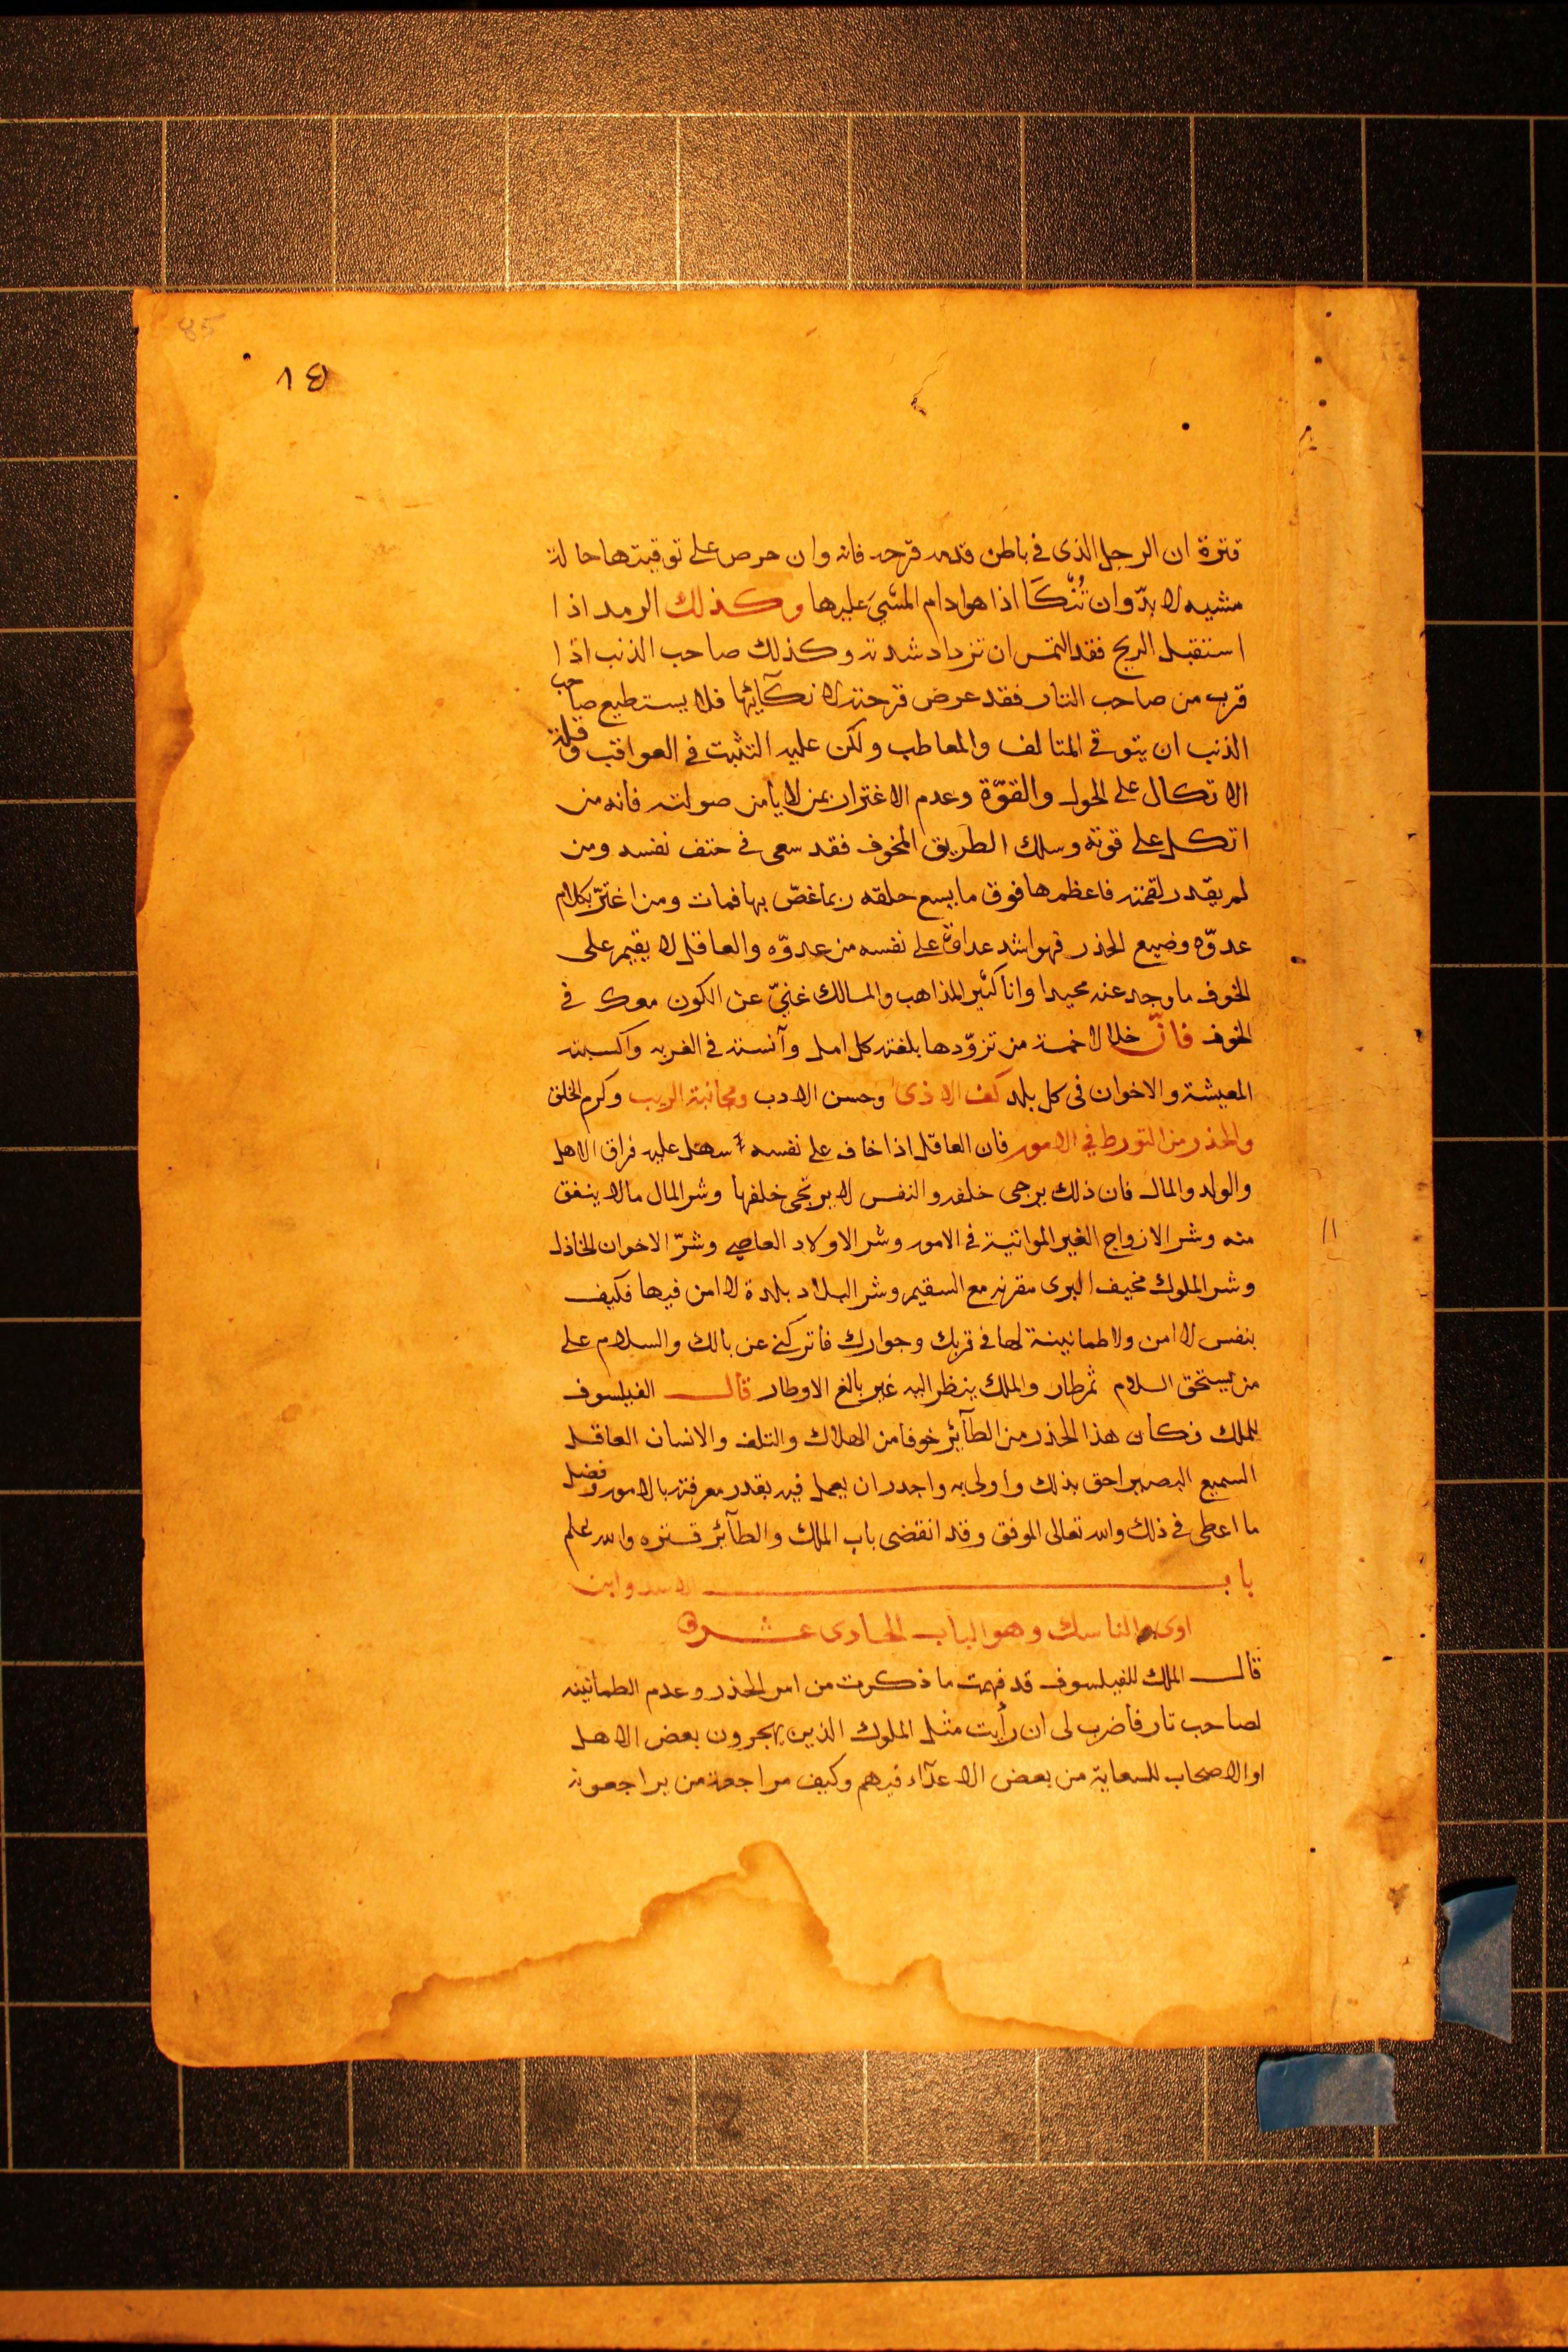 85
٨٥
قترة ان الرجل الذى فى باطن قدمه قرحه فانه وان حرص على توقيتها حالة
مشيه لا بدّ وان تُنْكَا اذا هو ادام المشىَ عليها وكذلك الرمد اذا
استقبل الريح فقد التمس ان تزداد شدته وكذلك صاحب الذنب اذا
قرب من صاحب الثار فقد عرض قرحته لانكآئها فلا يستطيع صاحب
الذنب ان يتوقى المتالف والمعاطب ولكن عليه التثبت فى العواقب وقلة
الاتكال على الحول والقوّة وعدم الاغترار بمن لا يامن صولته فانه من
اتكل على قوته وسلك الطريق المخوف فقد سعى فى حتف نفسه ومن
لم يقدر لقمته فاعظمها فوق ما يسع حلقه ربما غصّ بها فمات ومن اغترّ بكلام
عدوّه وضيع الحذر فهو اشد عداوة على نفسه من عدوّه والعاقل لا يقيم على
الخوف ما وجد عنه محيدا وانا كثير المذاهب والمسالك غنىّ عن الكون معك فى
الخوف فانّ خلالا خمسة من تزوّدها بلغته كل امل وآنسته فى الغربه واكسبته
المعيشة والاخوان فى كل بلد كف الاذى وحسن الادب ومجانبة الريب وكرم الخلق
والحذر من التورط فى الامور فان العاقل اذا خاف على نفسه سهل عليه فراق الاهل
والولد والمال فان ذلك يرجى خلفه والنفس لا يرتجى خلفها وشر المال ما لا ينفق
منه وشر الازواج الغير المواتية فى الامور وشر الاولاد العاصى وشرّ الاخوان الخاذل
وشر الملوك مخيف البرى مقرنه مع السقيم وشر البلاد بلدة لا امن فيها فكيف
بنفس لا امن ولا طمانينة لها فى قربك وجوارك فاتركنى عن بالك والسلام على
من يستحق السلام ثم طار والملك ينظر اليه غير بالغ الاوطار قال الفيلسوف
للملك فكان هذا الحذر من الطآئر خوفا من الهلاك والتلف والانسان العاقل
السميع البصير احق بذلك واولى به واجدر ان يعمل فيه بقدر معرفته بالامور وفضل
ما اعطى فى ذلك والله تعالى الموفق وقد انقضى باب الملك والطآئر قتزه والله اعلم
باب الاسد وابن
اوى والناسك وهو الباب الحادى عشر
قال الملك للفيلسوف قد فهمت ما ذكرت من امر الحذر وعدم الطمانينه
لصاحب ثار فاضرب لى ان رأيت مثل الملوك الذين يهجرون بعض الاهل
او الاصحاب للسعاية من بعض الاعدآء فيهم وكيف مراجعة من يراجعونه